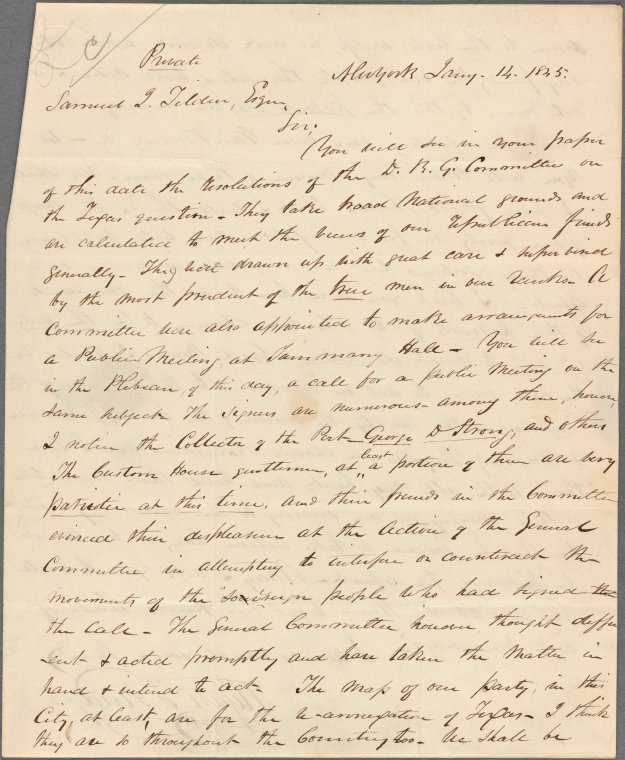 Private
New York Jany. 14. 1845.
Samuel J. Tilden, Esqr.
Sir;
You will see in your paper
of this date the resolutions of the D. R. G. Committee on
the Texas question - They take broad National grounds and
are calculated to meet the views of our republican friends
generally - They were drawn up with great care & supervised
by the most prudent of the true men in our ranks - A
Committee were also appointed to make arrangements for
a Public Meeting at Tammany Hall - You will see
in the Plebian, of this day, a call for a public meeting on the
same subject. The signers are numerous - among them, however,
I notice the Collector of the Port - George D Strong, and others
The Custom House gentlemen, at least a portion of them are very
patriotic at this time, and their friends in the Committee
evinced their displeasure at the action of the General
Committee in attempting to interfere or counteract the
movements of the "sovereign people who had signed the
the call - The General Committee however thought differ
-ent & acted promptly and have taken the matter in
hand & intend to act - The mass of our party, in this
City, at least, are for the re-annexation of Texas - I think
they are so throughout the Country too - We shall be